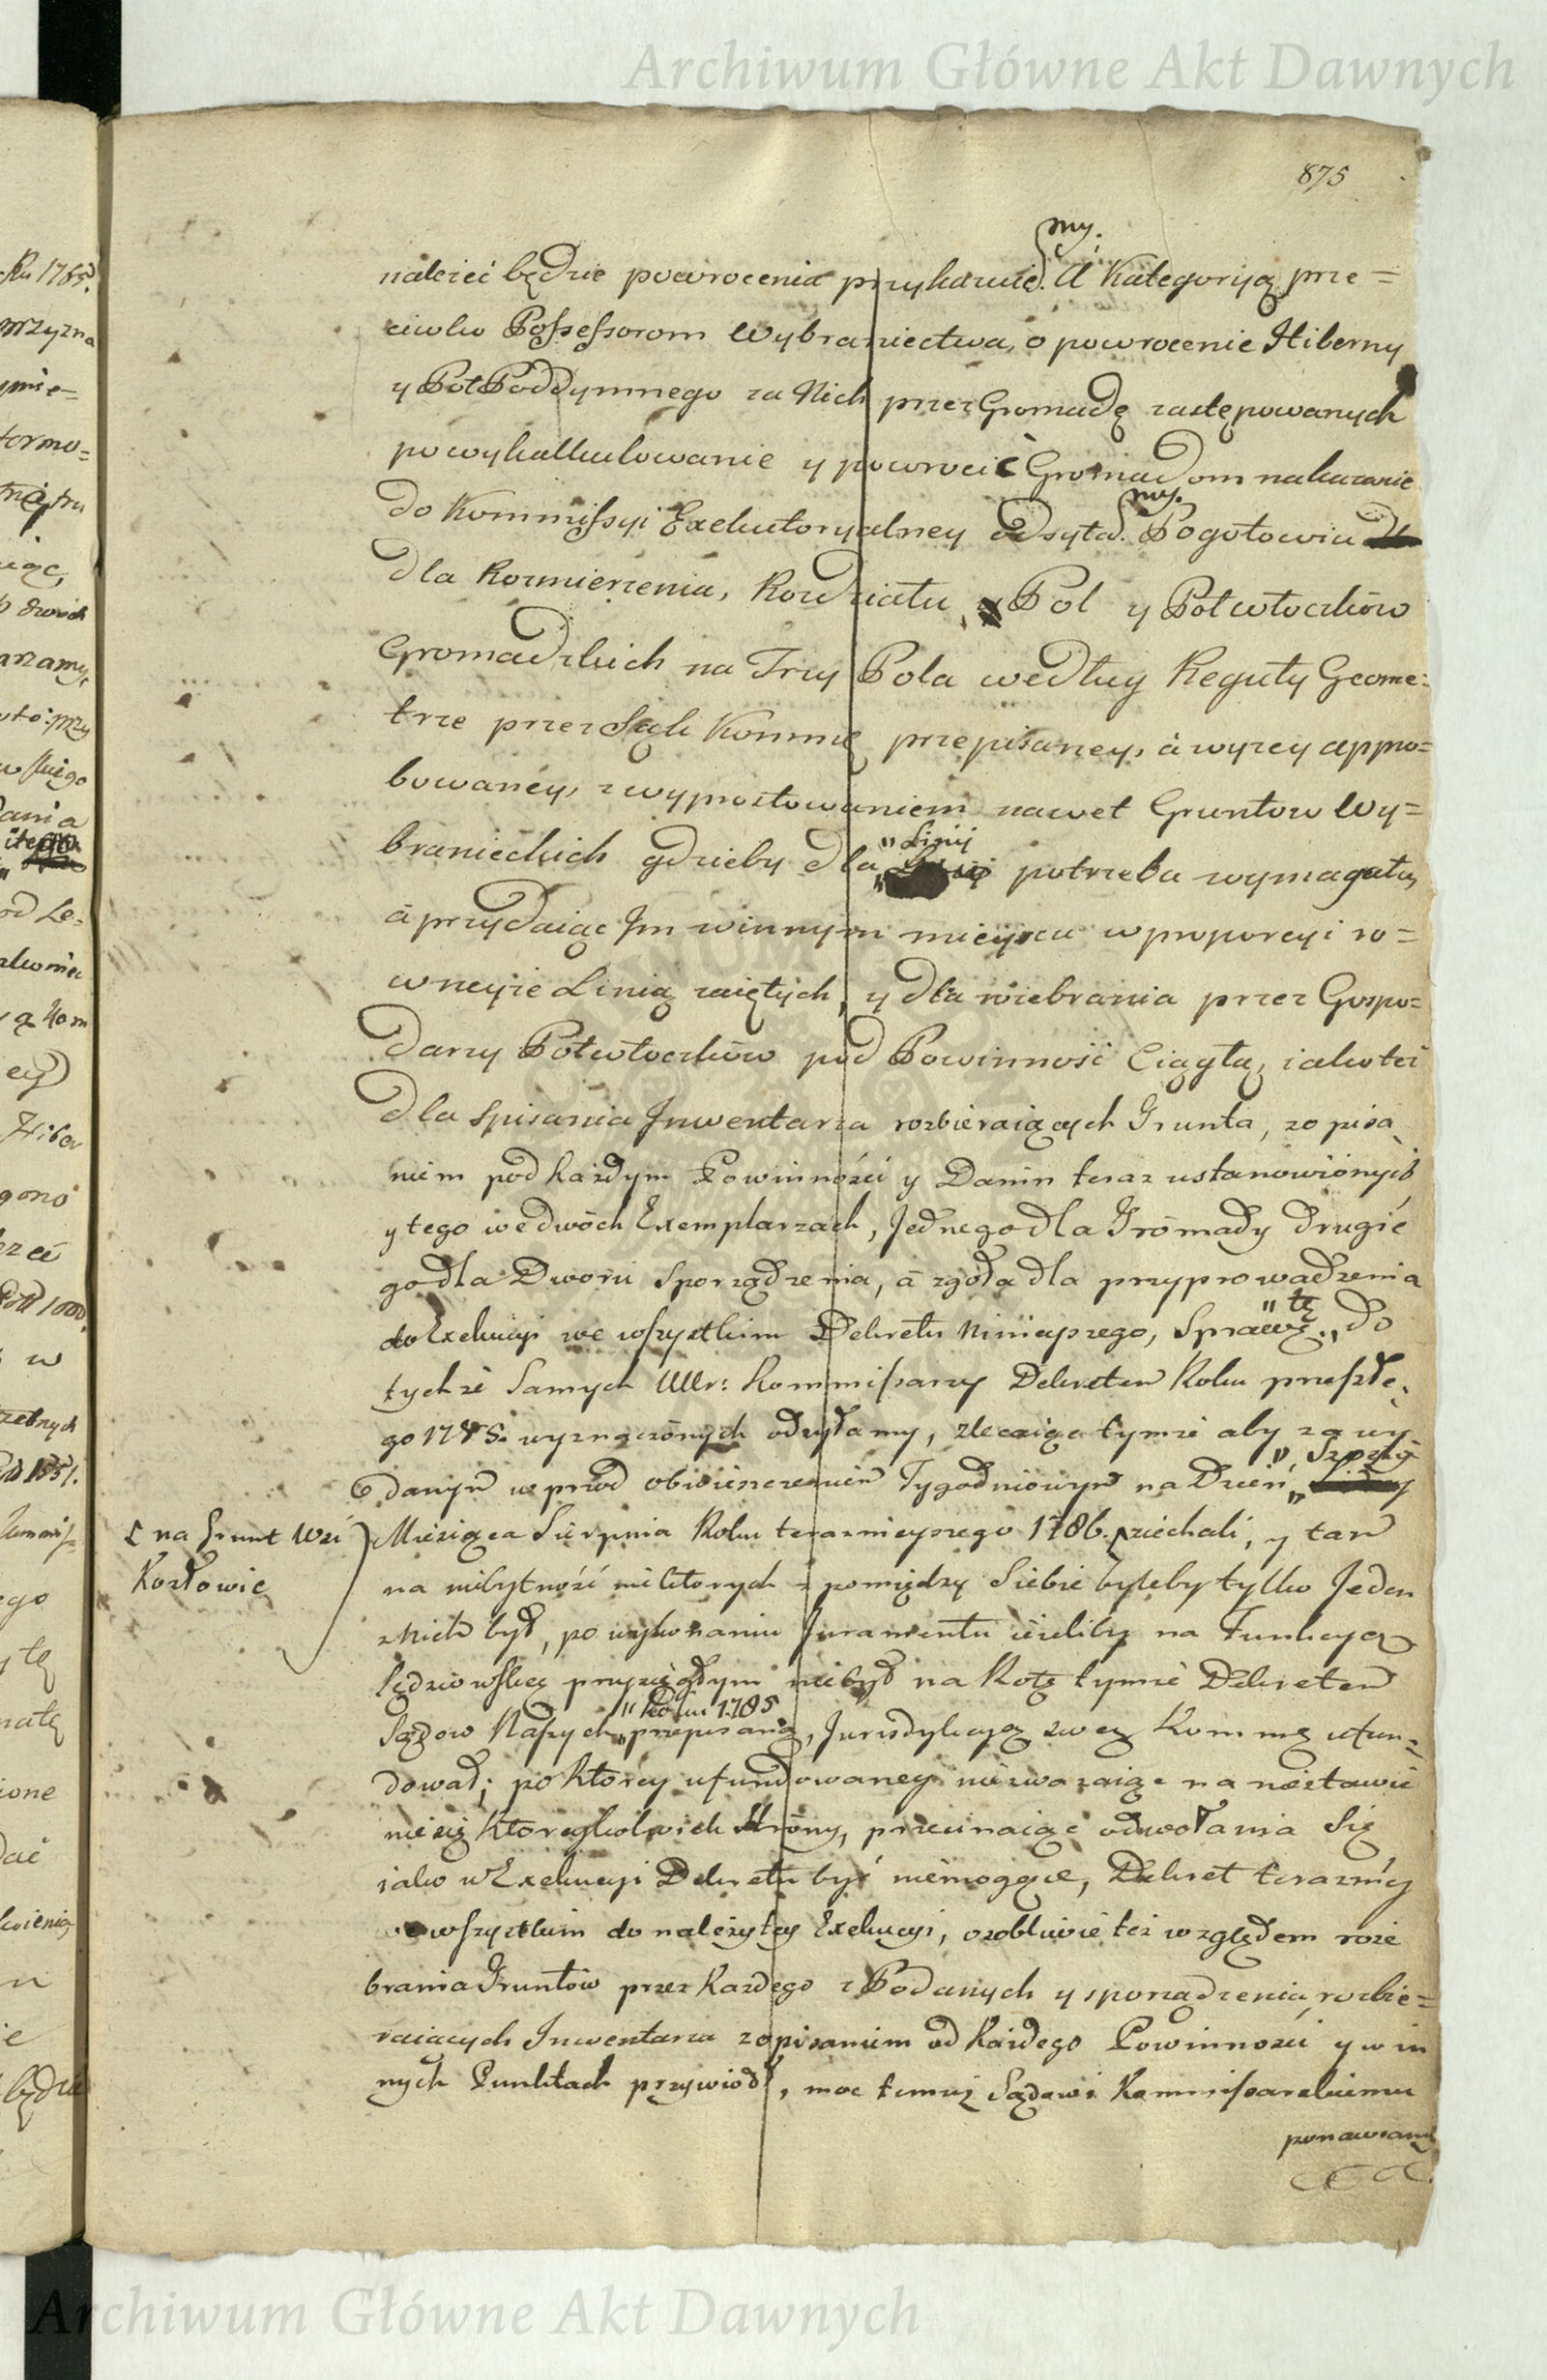 Archiwum Główne Akt Dawnych
875
należeć będzie powrocenia przykazuie my. A Kategoryią prze=
ciwko Possessorom Wybraniectwa, o powrocenie Hiberny
y Poł Poddymnego za Nich przez Gromadę zastępowanych
powykalkulowanie y powrocić Gromadom nakazanie
do Kommissyi Exekutoryalney odsyła my. Pogotowiu
dla Rozmierzenia, Rozdziału, Pol y Połwłoczków
Gromadzkich na Trzy Pola według Reguły Geome=
trze przez Sąd Kommę przepisaney, á wyzey appro=
bowaney, z wyprostowaniem nawet Gruntow Wy=
branieckich gdzieby dla „Linij potrzeba wymagała,
á przydaiąc Im w innym mieyscu w proporcyi ro=
wneyże Linią zaiętych, y dla rozebrania przez Gospo=
darzy Połwłoczków pod Powinność Ciągłą, iako też
dla spisania Inwentarza rozbieraiących Grunta, zo pisa
niem pod każdym Powinności y Danin teraz ustanowiónych
y tego we dwóch Exemplarzach, Jednego dla Grómady drugié
go dla Dworu sporządzenia, á zgoła dla przyprowadzenia
do Exekucyi we wszystkim Dekretu ninieyszego, Sprawę „tę „do
tychże samych Ur: Kommissarzy Dekretem Roku przeszłe
go 1785. wyznaczónych odsyłamy, zlecaiąc tymże aby za wy
danym w przód obwieszczeniem Tygodniowym na Dzień „Szosty
[ na Grunt Wsi
Kozłowic
Miesiąca Sierpnia Roku teraznieyszego 1786. ziechali, y tam
na niebytność niektorych z pomiędzy siebie byleby tylko Jeden
z Nich był, po wykonaniu Juramentu ieżeliby na Funkcyą
Sędziowską przysięgłym niebył na Rotę tymże Dekretem
Sądow Naszych „Roku 1785 „przepisaną, Jurisdykcyą swey Kommę ufun=
dował; po ktorey ufundowaney niezwazaiąc na niestawie
nie się ktoreykolwiek Strony, przecinaiąc odwołania się
iako w Exekucyi Dekretu być niemogące, Dekret teraznieyszy
we wszystkim do należytey Exekucyi, osobliwie też względem roze
brania Gruntów przez każdego z Podanych y sporządzenia, rozbie=
raiących Inwentarza zopisaniem od każdego Powinności y w in
nych Punktach przywiodł, moc temuż Sądowi Kommissarskiemu
ponawiamy
Archiwum Główne Akt Dawnych